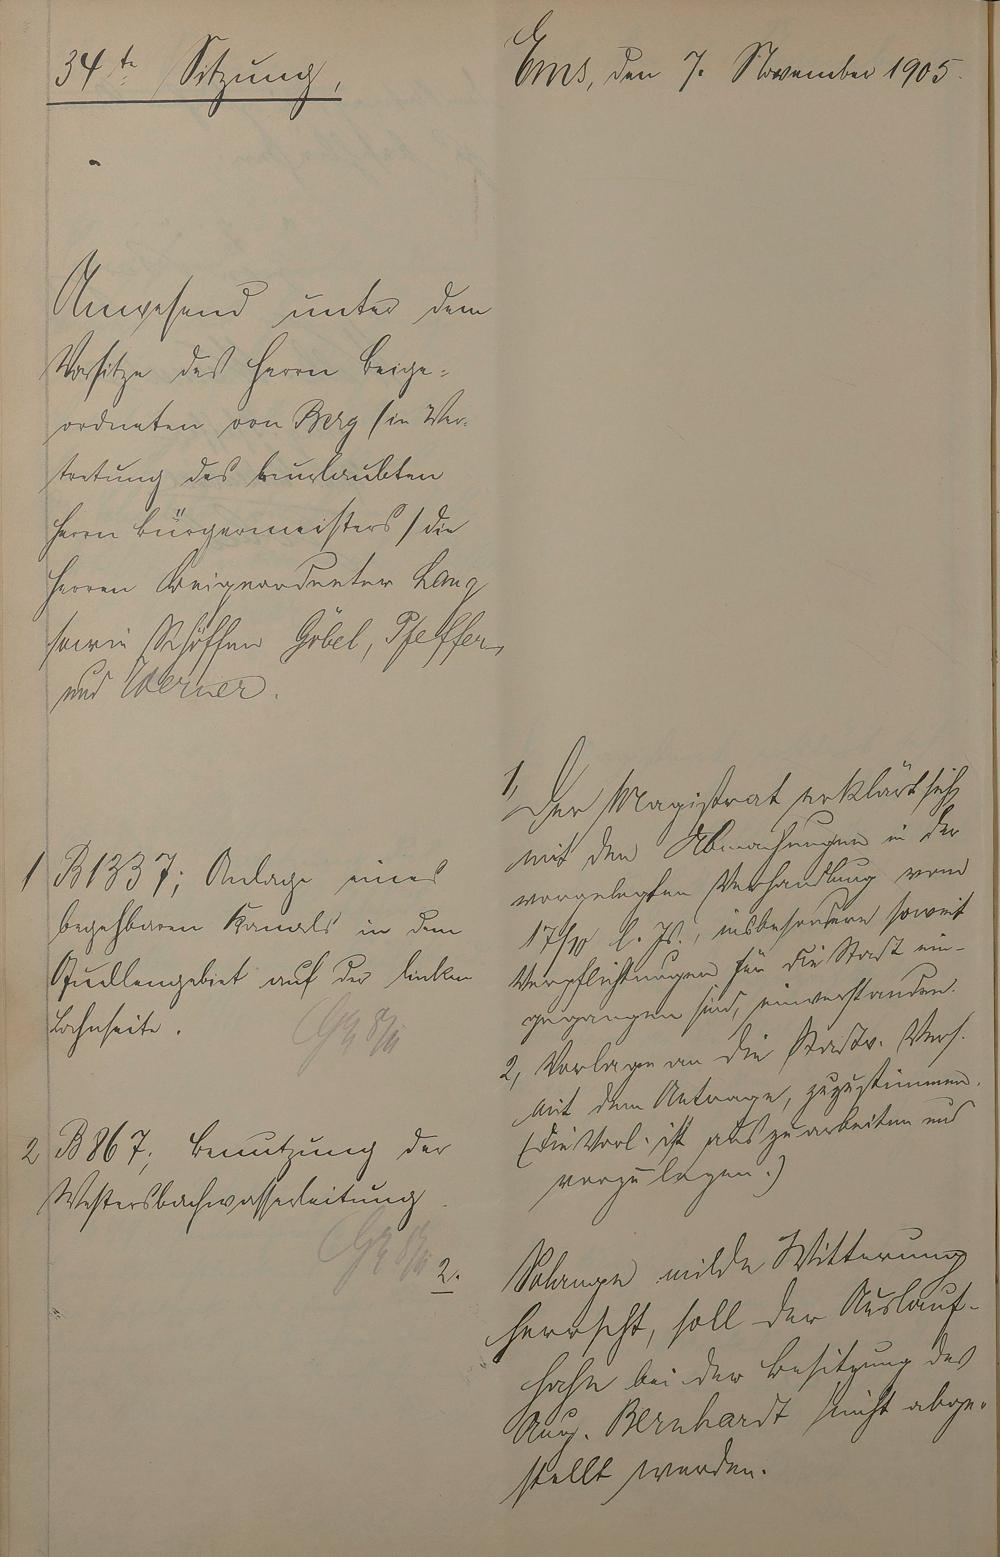 34te Sitzung,
Ems, den 7. November 1905.
Anwesend unter dem
Vorsitze des Herrn Beige-
ordneten von Berg /in Ver-
tretung des beurlaubten
Herrn Bürgermeisters/ die
Herren Beigeordneter Lang
sowie Schöffen Göbel, Pfeffer
und Werner.
1 B1337; Anlage eines
begehbaren Kanals in dem
Quellengebiet auf der linken
Lahnseite.
1, Der Magistrat erklärt sich
mit den Abmachungen in der
vorgelegten Verhandlung vom
17/10 l. Js., insbesondere soweit
Verpflichtungen für die Stadt ein-
gegangen sind, einverstanden.
2, Vorlage an die Stadtv. Vers.
mit dem Antrage, zuzustimmen.
(Die Vorl. ist auszuarbeiten und
vorzulegen.)
2 B867; Benutzung der
Westersbachwasserleitung
2. Solange milde Witterung
herrscht, soll der Auslauf-
hahn bei der Besitzung des
Aug. Bernhardt nicht abge-
stellt werden.